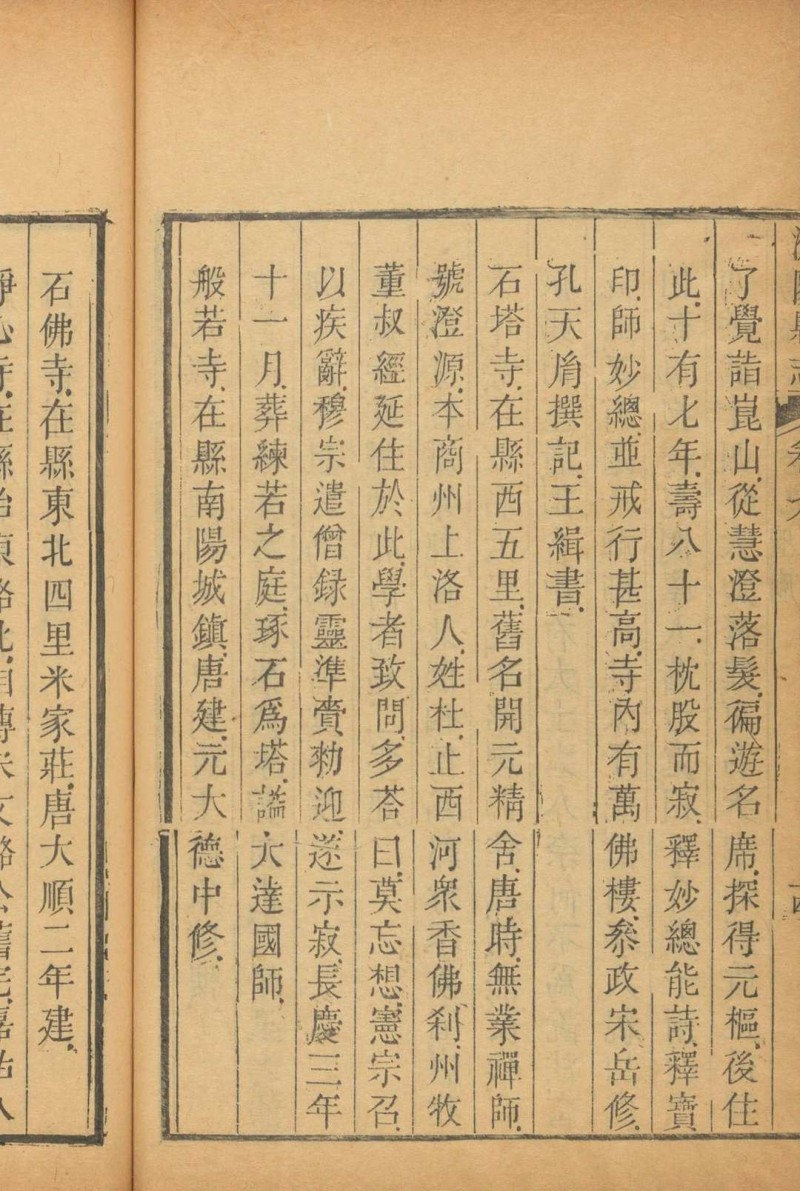 了覺詣崑山從慧澄落髮徧遊名席探得元樞後住
此十有七年壽八十一枕股而寂釋妙總能詩釋寶
印師妙總並戒行甚高寺內有萬佛樓叅政宋岳修
孔天胤撰記王緝書
石塔寺在縣西五里舊名開元精舍唐時無業禪師
號澄源本商州上洛人姓杜止西河衆香佛刹州牧
董叔經延住於此學者致問多荅曰莫忘想憲宗召
以疾辭穆宗遣僧録靈準賫勑迎遂示寂長慶三年
十一月葬練若之庭琢石爲塔諡大達國師
般若寺在縣南陽城鎮唐建元大德中修
石佛寺在縣東北四里米家莊唐大順二年建